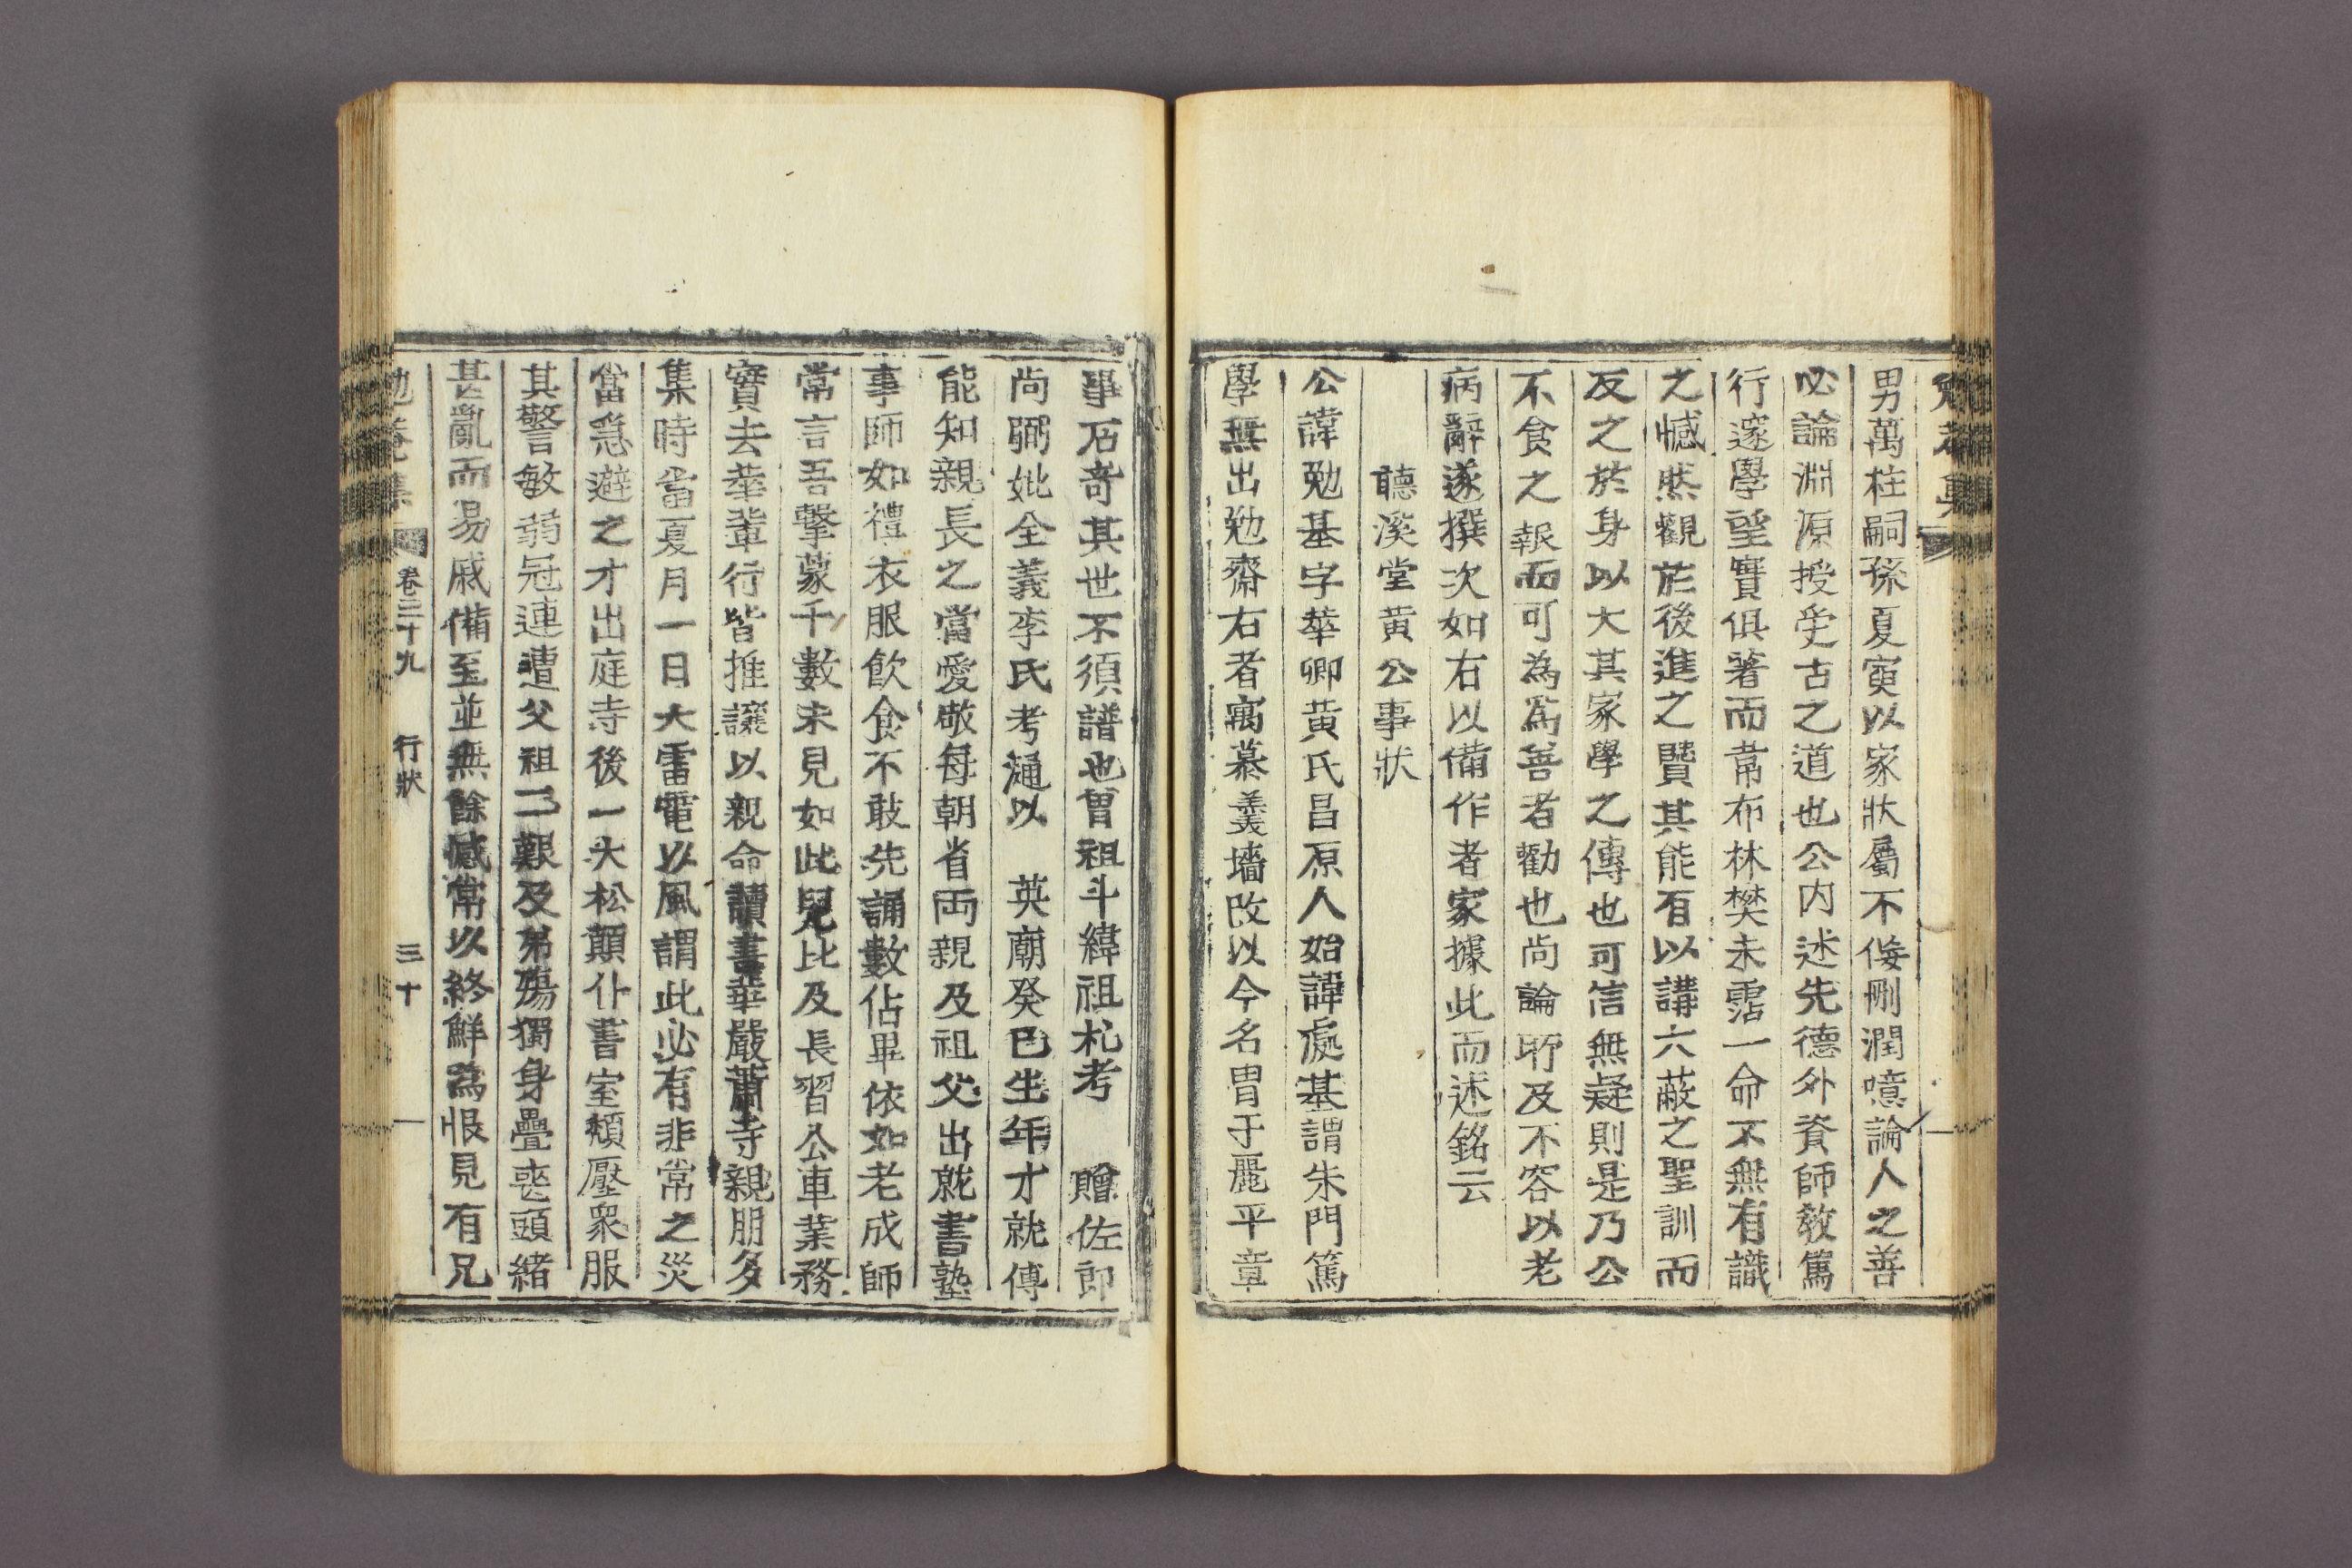 男萬柱嗣孫夏寅以家狀屬不侫刪潤噫論人之善
必論淵源授受古之道也公内述先德外資師教篤
行邃學望實俱著而韋布林樊未霑一命不無有識
之憾然觀於後進之賢其能有以講六蔽之聖訓而
反之於身以大其家學之傳也可信無疑則是乃公
不食之報而可為爲善者勸也尚論所及不容以老
病辭遂撰次如右以備作者家據此而述銘云
聽溪堂黄公事狀
公諱勉基字華卿黄氏昌原人始諱處基謂朱門篤
學無出勉齋右者寓慕羹墻改以今名胄于麗平章
事石奇其世不須譜也曽祖斗緯祖札考 贈佐郎
尚弼妣全義李氏考漣以 英廟癸巳生年才就傅
能知親長之當愛敬每朝省両親及祖父出就書塾
事師如禮衣服飲食不敢先誦數佔畢依如老成師
常言吾擊蒙千數未見如此兒比及長習公車業務
實去華輩行皆推讓以親命讀書華嚴蕭寺親朋多
集時當夏月一日大雷電以風謂此必有非常之災
當急避之才出庭寺後一大松顛仆書室頹壓衆服
其警敏弱冠連遭父祖二艱及弟殤獨身疊喪頭緖
甚亂而易戚備至並無餘憾常以終鮮爲恨見有兄
勉菴集 卷三十九 行狀 三十